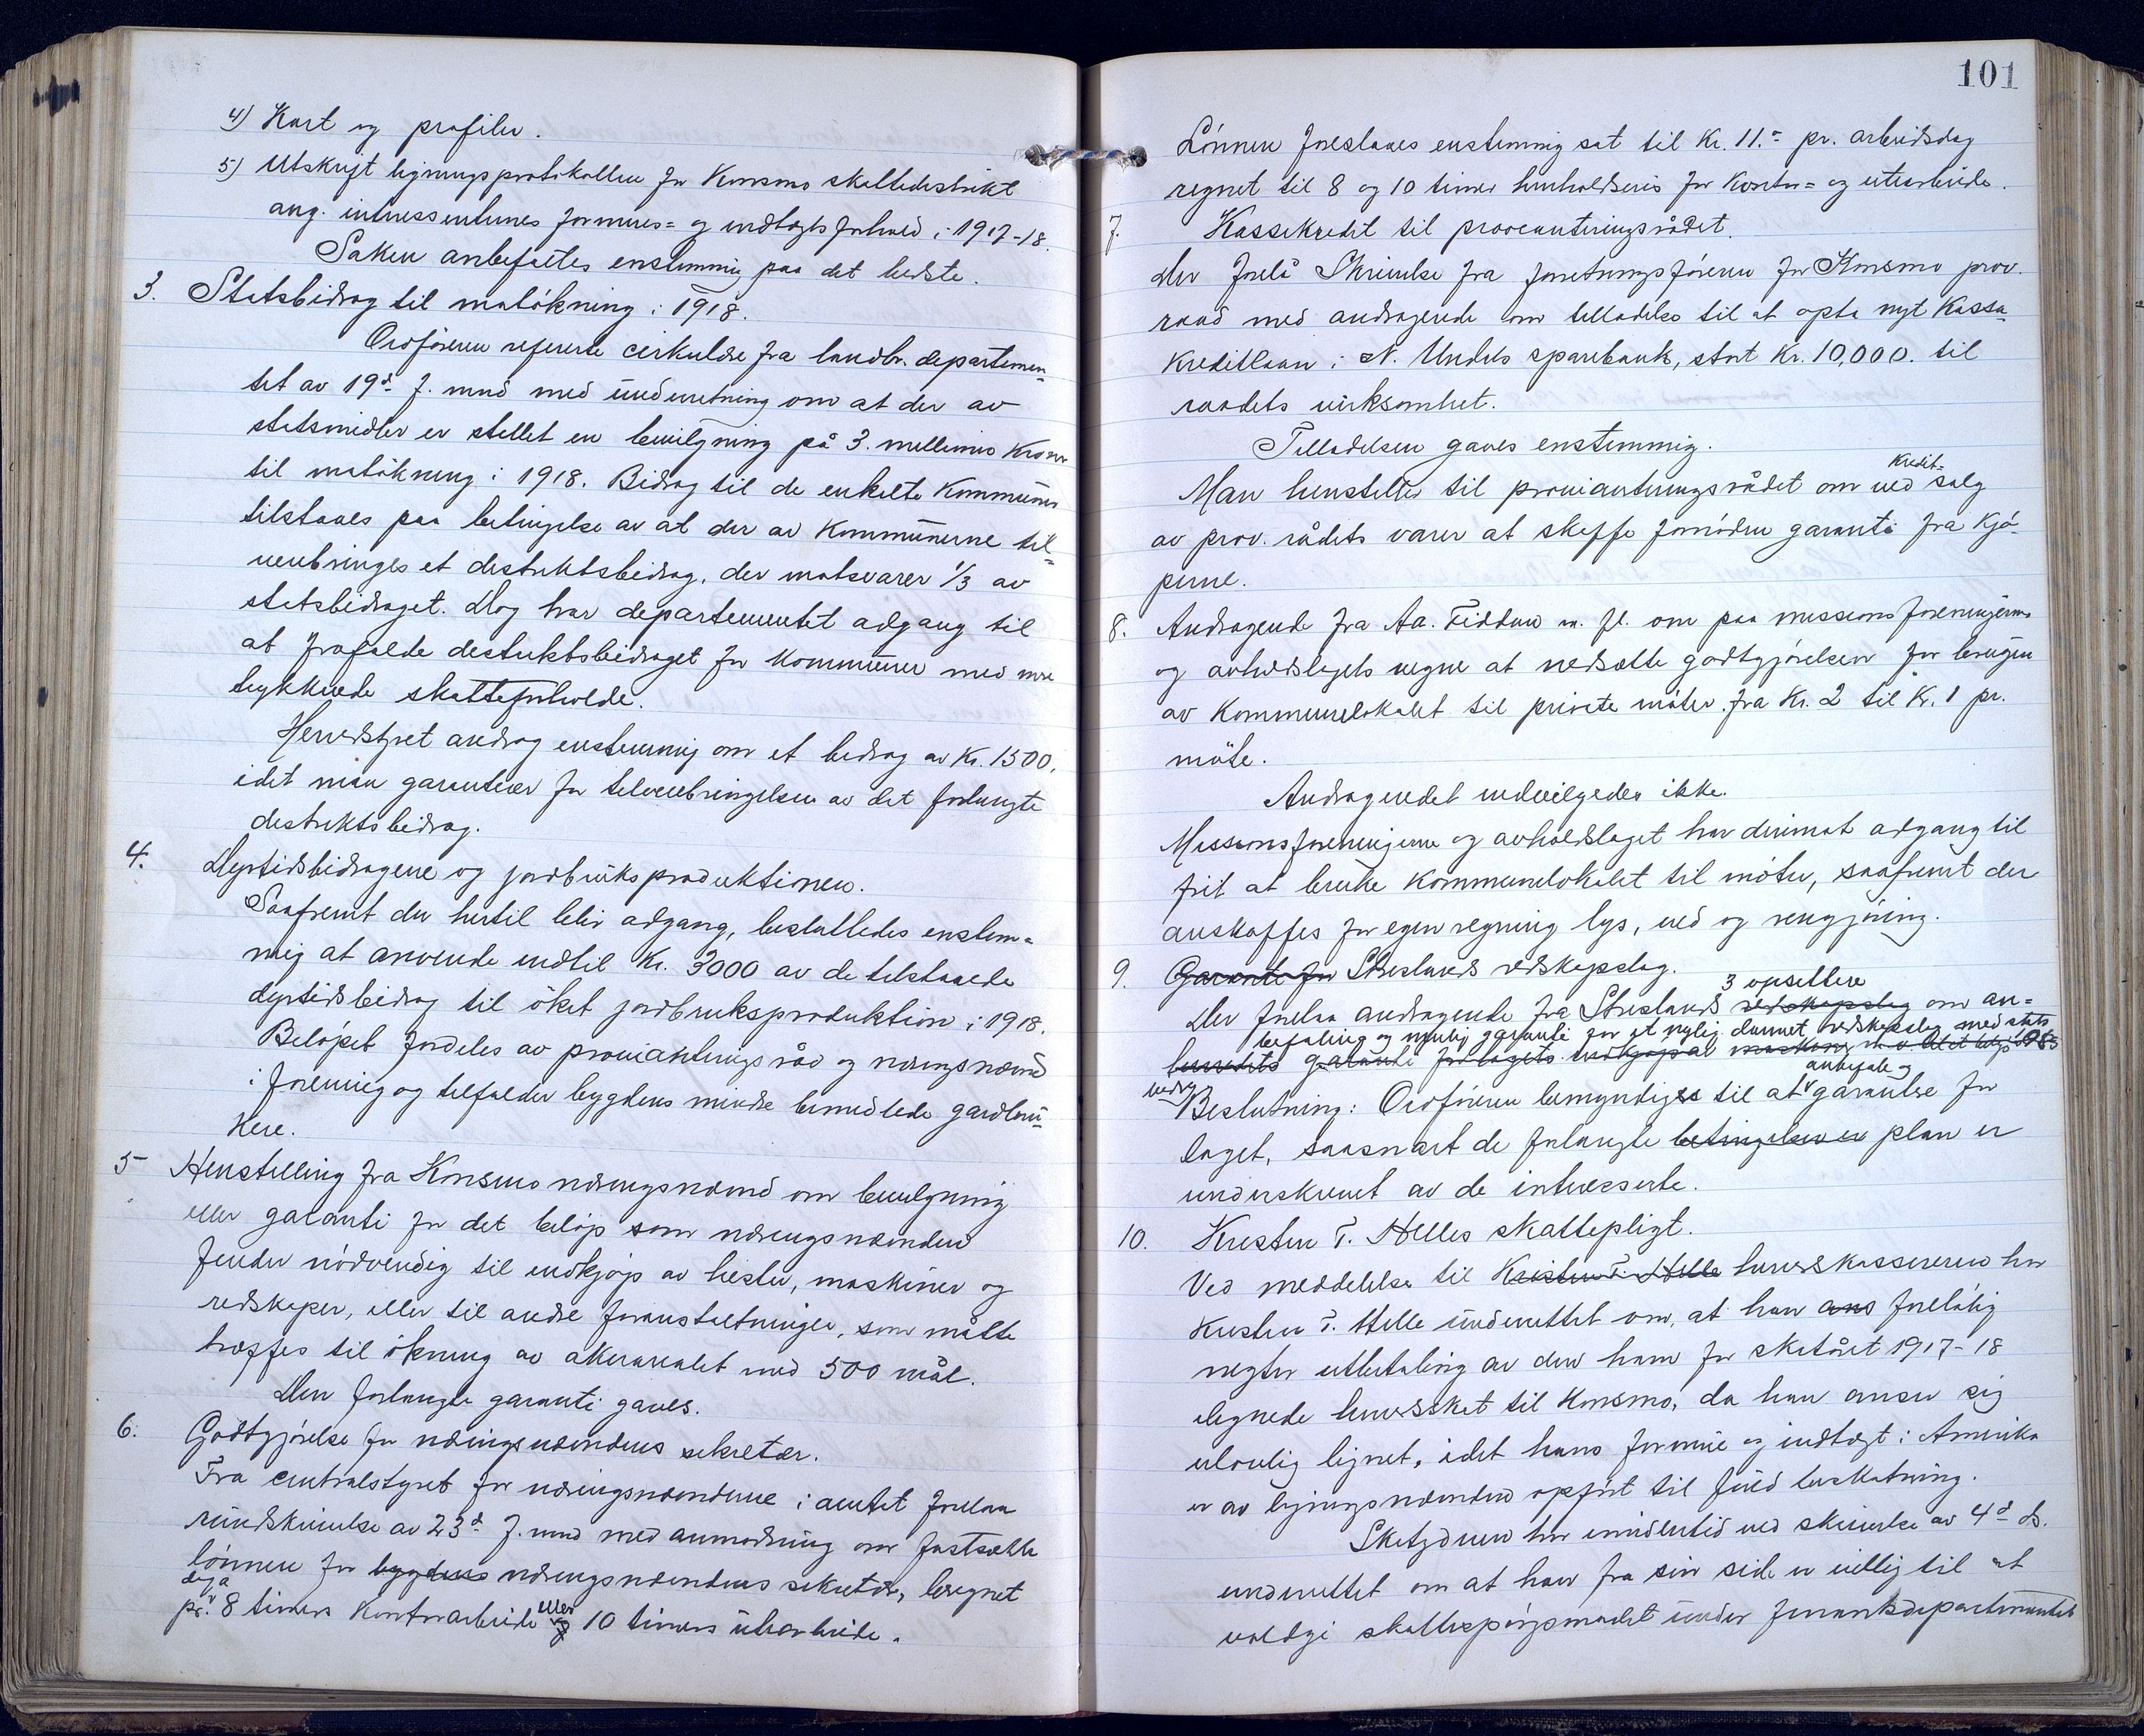 4) Kart og profiler.
5) Utskrift ligningsprotokollen for Konsmo skattedistrikt
ang. intressentenes formues- og indtægtsforhold i 1917-18.
Saken anbefaltes enstemmig paa det bedste.
3. Statsbidrag til matökning i 1918.
Ordföreren refererte cirkulære fra landbr. departemen-
tet av 19d f. mnd med underretning om at der av
statsmidler er stillet en bevilgning på 3. millioner Kroner
til matökning i 1918. Bidrag til de enkelte Kommuner
tilstaaes paa betingelse av at der av Kommunerne til-
veiebringes et distriktsbidrag, der motsvarer 1/3 av
statsbidraget. Dog har departementet adgang til
at frafalde distriktsbidraget for Kommuner med
trykkende skatteforholde.
Herredstyret androg enstemmig om et bidrag av Kr. 1500,
idet man garanterer for tilveiebringelsen av det forlangte
distriktsbidrag.
4. Dyrtidsbidragene og jordbruksproduktionen.
Saafremt der hertil blir adgang, besluttedes enstem-
mig at anvende indtil Kr. 3000 av de tilstaaede
dyrtidsbidrag til öket jordbruksproduktion i 1918.
Belöpet fordeles av provianteringsråd og næringsnævnd
i forening og tilfalder bygdens mindre bemidlede gardbru-
kere.
5 Henstilling fra Konsmo næringsnævnd om bevilgning
eller garanti for det belöp som næringsnævnden
finder nödvendig til indkjöp av hester, maskiner og
redskaper, eller til andre foranstaltninger, som måtte
træffes til ökning av akerarealet med 500 mål.
Den forlangte garanti gaves.
6. Godtgjörelse for næringsnævndens sekretær.
Fra centralstyret for næringsnævndene i amtet forelaa
rundskrivelse av 23d f. mnd med anmodning om fastsætte
lönnen for bygdens næringsnævndens sekretær, beregnet
dag a
pr. 8 timers kontorarbeide og eller 10 timers utearbeide.
101
Lönnen foreslaaes enstemmig sat til Kr. 11.- pr. arbeidsdag
regnet til 8 og 10 timer henholdsvis for kontor- og utearbeide.
7. Kassekredit til provianteringsrådet.
Der forelå Skrivelse fra forretningsföreren for Konsmo prov.
raad med andragende om tilladelse til at opta nyt Kassa-
kreditlaan i N. Undals sparebank, stort Kr. 10,000. til
raadets virksomhet.
Tilladelsen gaves enstemmig.
Man henstiller til provianteringsrådet om ved kredit-salg
av prov. rådets varer at skaffe fornöden garanti fra kjö-
perne.
8. Andragende fra Aa. Fiddan m. fl. om paa missionsforeningernes
og avholdslagets vegne at nedsætte godtgjörelsen for brugen
av Kommunelokalet til private möter fra Kr. 2 til Kr. 1 pr.
möte.
Andragendet indvilgedes ikke.
Missionsforeningerne og avholdslaget har derimot adgang til
frit at bruke kommunelokalet til möter, saafremt der
anskaffes for egen regning lys, ved og rengjöring.
9. Garanti for Struslands redskapslag.
3 opsittere
Der forelaa andragende fra Struslands redskapslag om an-
befaling og mulig garanti for et nylig dannet redskapslag med stats
garanti for lagets indkjöp al maskiner
bidrag
anbefale og
Beslutning: Ordföreren bemyndiges til at garantere for
laget, saasnart de forlangte betingelser er plan er
underskrevet av de interesserte.
10. Kristen T. Helles skattepligt.
Ved meddelelse til Kristen T. Helle herredskassereren har
Kristen T. Helle underrettet om, at han ans foreløbig
negter utbetaling av den ham for skatåret 1917-18
ilignede herredskat til Konsmo, da han anser sig
ulovlig lignet, idet hans formue og indtægt i Amerika
er av ligningsnævnden opfört til fuld beskatning.
Skatyderen har imidlertid ved skrivelse av 4d ds.
underrettet om at han fra sin side er villig til at
voldgi skattespörgsmaalet under finansdepartementet